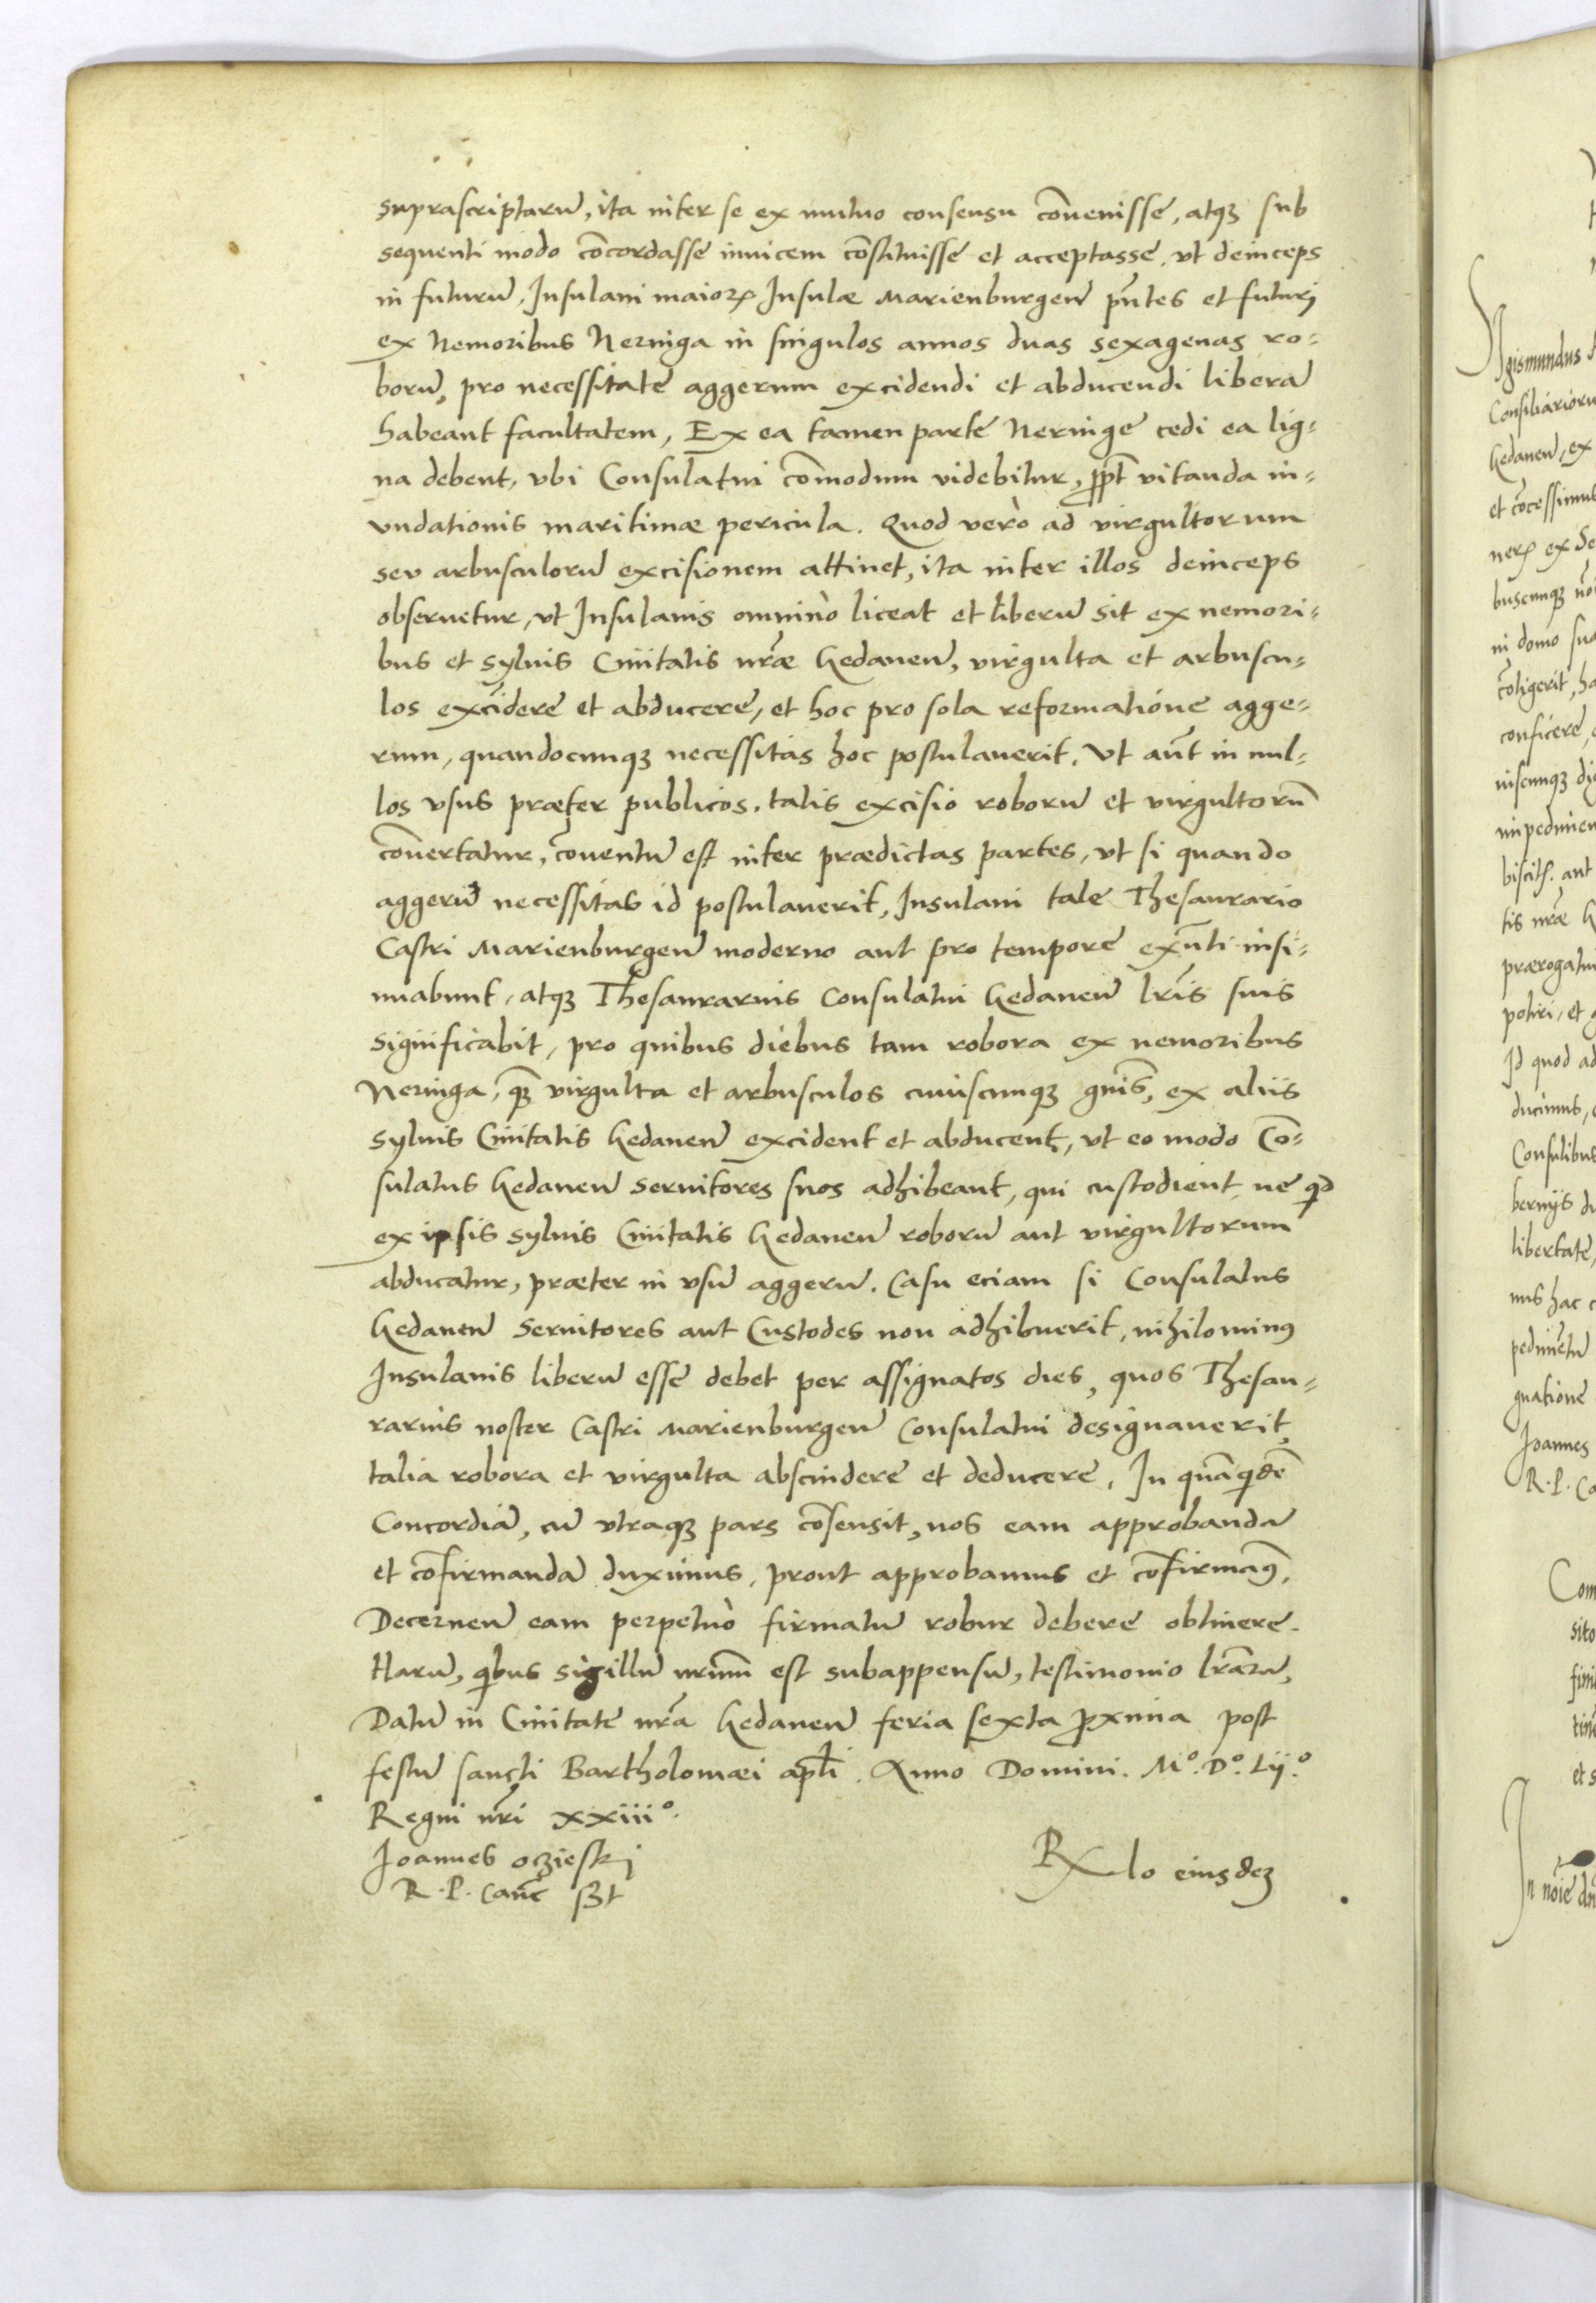 suprascriptarū, ita inter se ex mutuo consensu cōuenisse, atqꝫ sub
sequenti modo cōcordasse inuicem cōstituisse et acceptasse, vt deinceps
in futurū, Insulani maioꝝ Insulæ Marienburgen̄ pn̄tes et futurj
ex Nemoribus Neringa in singulos annos duas sexagenas ro-
borū, pro necessitate aggerum excidendi et abducendi liberā
habeant facultatem, Ex ea tamen parte Neringe cedi ea lig-
na debent, vbi Consulatui cōmodum videbitur, ꝓpt̄ vitanda in-
vndationis maritimæ pericula. Quod verò ad virgultorum
seu arbusculorū excisionem attinet, ita inter illos deinceps
obseruetur, vt Insulanis omninò liceat et liberū sit ex nemori-
bus et syluis Ciuitatis nr̄æ Gedanen̄, virgulta et arbuscu-
los excidere et abducere, et hoc pro sola reformatione agge-
rum, quandocunqꝫ necessitas hoc postulauerit, Vt aūt in nul-
los vsus præter publicos, talis excisio roborū et virgultorū
cōuertatur, cōuentū est inter prædictas partes, vt si quando
aggerū necessitas id postulauerit, Insulani tale Thesaurario
Castri Marienburgen̄ moderno aut pro tempore exn̄ti insi-
nuabunt, atqꝫ Thesaurarius Consulatui Gedanen̄ lr̄is suis
significabit, pro quibus diebus tam robora ex nemoribus
Neringa, qꝫ virgulta et arbusculos cuiuscunqꝫ gn̄is, ex aliis
syluis Ciuitatis Gedanen̄ excident et abducent, vt eo modo Cō-
sulatus Gedanen̄ seruitores suos adhibeant, qui custodient ne qd
ex ipsis syluis Ciuitatis Gedanen̄ roborū aut virgultorum
abducatur, præter in vsū aggerū. Casu eciam si Consulatus
Gedanen̄ Seruitores aut Custodes non adhibuerit, nihilominꝰ
Insulanis liberū esse debet per assignatos dies, quos Thesau-
rarius noster Castri Marienburgen̄ Consulatui designauerit
talia robora et virgulta abscindere et deducere. In quā qidē
Concordiā, cū vtraqꝫ pars cōsensit, nos eam approbandā
et cōfirmandā duximus, prout approbamus et cōfirmamꝰ,
Decernen̄ eam perpetuò firmatū robur debere obtinere.
Harū, qibus sigillū nr̄um est subappensū, testimonio lr̄arū,
Datū in Ciuitate nr̄a Gedanen̄ feria sexta ꝓxima post
festū sancti Bartholomæi apl̄i. Anno Domini. Mº. Dº. Lijº
Regni nr̄i xxiiiº.
Joannes oczieskj
R. P. Canc̄ sst
Rlo eiusdeꝫ
Consiliarioru
Gedanen̄, ex
et cōcessimus
in domo sua
conficere
prærogatiu
potiri, et
Id quod ad
ducimus,
Consulibus
libertate,
gnatione
Joannes